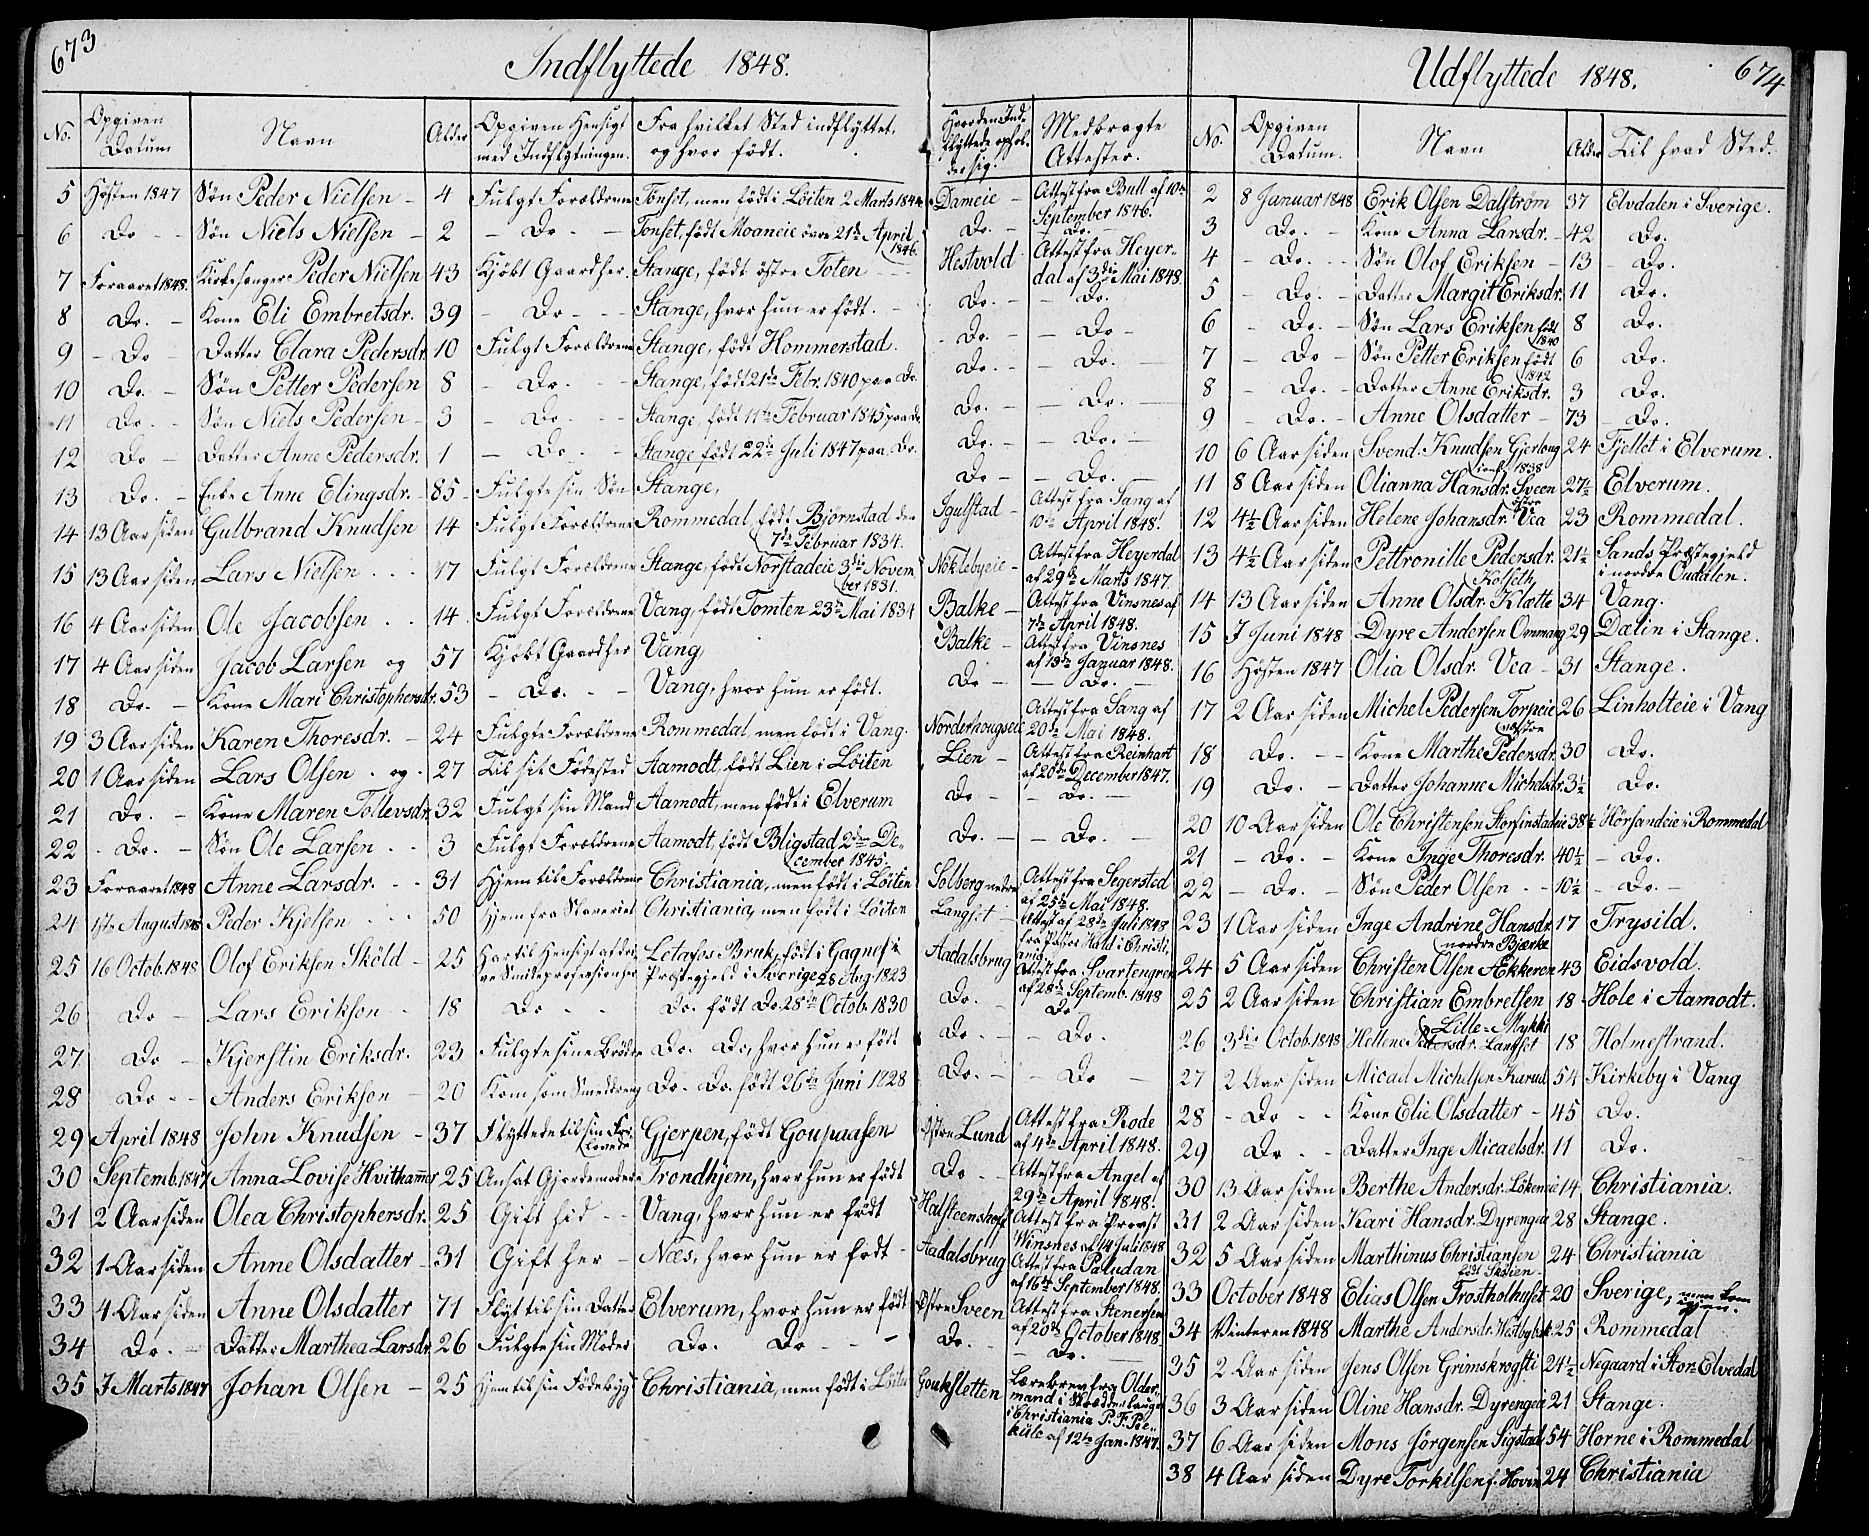 673
Indflyttede 1848.
No. | Opgiven Datum | Navn | Alder | Opgiven Hensigt med Indflytningen. | Fra hvilket Sted indflyttet, og hvor født. | Hvor den Indflyttede opholder sig. | Medbragte Attester.
5 | Høsten 1847 | Søn Peder Nielsen | 4 | Fulgt Forældrene | Tonset, men født i Løiten 2 Marts 1844 | Dameie | Attest fra Bull af 10de September 1846.
6 | Do | Søn Niels Nielsen | 2 | Do | Tonset, født Moaneie øvre 21de April 1846. | Do. | Do.
7 | Foraaret 1848. | Kirkesanger Peder Nielsen | 43 | Kjøbt Gaard her. | Stange, født østre Toten | Hestvold | Attest fra Heyerdal af 3die Mai 1848.
8 | Do. | Kone Eli Embretsdr. | 39 | Do | Stange, hvor hun er født. | Do. | Do.
9 | Do | Datter Clara Pedersdr. | 10 | Fulgt Forældrene | Stange, født Hommerstad. | Do. | Do
10 | Do. | Søn Petter Pedersen | 8 | Do. | Stange, født 21de Febr. 1840 paa Do. | Do. | Do.
11 | Do. | Søn Niels Pedersen | 3 | Do. | Stange, født 11te Februar 1845 paa do | Do. | Do.
12 | Do | Datter Anne Pedersdr. | 1 | Do. | Stange født 22de Juli 1847 paa Do. | Do. | Do.
13 | Do. | Enke Anne Elingsdr. | 85 | Fulgte sin Søn | Stange, | Do | Do.
14 | 13 Aar siden | Gulbrand Knudsen | 14 | Fulgt Forældrene | Rommedal, født Bjørnstad den 7de Februar 1834. | Igulstad | Attest fra Tang af 10de April 1848.
15 | 13 Aar siden | Lars Nielsen | 17 | Fulgt Forældrene | Stange, født Norstadeie 3die November 1831. | Nøklebyeie | Attest fra Heyerdal af 29de Marts 1847.
16 | 4 Aar siden | Ole Jacobsen | 14 | Fulgt Forældrene | Vang, født Tomten 23de Mai 1834 | Balke | Attest fra Vinsnes af 7de April 1848.
17 | 4 Aar siden | Jacob Larsen og | 57 | Kjøbt Gaard her | Vang, | Balke | Attest fra Vinsnes af 13de Januar 1848.
18 | Do. | Kone Mari Christophersdr. | 53 | Do. | Vang, hvor hun er født. | Do | Do.
19 | 3 Aar siden | Karen Thoresdr. | 24 | Fulgte Forældrene | Rommedal, men født i Vang. | Norderhougseie | Attest fra Sang af 20de Mai 1848.
20 | 1 Aar siden | Lars Olsen og | 27 | Til sit Fødested | Aamodt, født Lien i Løiten | Lien | Attest fra Reinhart af 20de December 1847.
21 | Do. | Kone Maren Tollevsdr. | 32 | Fulgt sin Mand | Aamodt, men født i Elverum | Do | Do.
22 | Do. | Søn Ole Larsen | 3 | Fulgt Forældrene | Aamodt, født Bligstad 2den December 1845. | Do. | Do.
23 | Foraaret 1848 | Anne Larsdr. | 31 | Hjem til Forældrene | Christiania, men født i Løiten | Solberg nedre | Attest fra Segersted af 25de Mai 1848.
24 | 1ste August 1848 | Peder Kjelsen | 50 | Hjem fra Slaveriet | Christiania, men født i Løiten | Langset | Attest af 28de Juli 1848 fra Pastor Hald i Christiania.
25 | 16 Octob. 1848 | Olof Eriksen Sköld | 25 | Har til Hensigt at drive Smideprofessionen | Letafos Bruk, født i Gagnef i Præstegjeld i Sverige 28 Aug 1823 | Aadalsbrug | Attest fra Svartengren af 28de Septemb. 1848
26 | Do | Lars Eriksen | 18 | Do | Do. født Do 28de Octob. 1830 | Do. | Do.
27 | Do | Kjerstin Eriksdr. | 23 | Fulgte sine Brødre | Do. Do, hvor hun er født | Do. | Do.
28 | Do | Anders Eriksen | 20 | Kom som Smeddreng | Do. Do. født 26de Juni 1828 | Do. | Do
29 | April 1848 | John Knudsen | 37 | Flyttede til sin Forlovede | Gjerpen, født Goupaasen | Østre Lund | Attest fra Rode af 4de April 1848.
30 | Septemb. 1847 | Anna Lovise Hvithamer | 25 | Ansat Gjordemoder | Trondhjem, hvor hun er født | Do | Attest fra Angel af 29de April 1848.
31 | 2 Aar siden | Olea Christophersdr. | 25 | Gift hid | Vang, hvor hun er født | Halsteenshoff | Attest fra Provst Winsnes af 14 Juli 1848
32 | 1 Aar siden | Anne Olsdatter | 31 | Gift her | Næs, hvor hun er født | Aadalsbrug | Attest fra Paludan af 16de September 1848.
33 | 4 Aar siden | Anne Olsdatter | 71 | Flyt til sin Datter | Elverum, hvor hun er født | Østre Sveen | Attest fra Stenersen af 20de October 1848
34 | Do. | Datter Marthea Larsdr. | 26 | Fulgte sin Moder | Do. Do | Do. | Do.
35 | 7 Marts 1847 | Johan Olsen | 25 | Hjem til sin Fødebygd | Christiania, men født i Løiten | Gouksletten | Lærebrev fra Oldermand i Skrædderlauget i Christiania P. F. Peekülc af 12te Jan. 1847.
674
Udflyttede 1848.
No. | Opgiven Datum. | Navn | Alder | Til hvad Sted.
2 | 8 Januar 1848 | Erik Olsen Dalstrøm | 37 | Elvdalen i Sverige.
3 | Do. | Kone Anna Larsdr. | 42 | Do.
4 | Do. | Søn Olof Eriksen | 13 | Do.
5 | Do. | Datter Margit Eriksdr. | 11 | Do.
6 | Do. | Søn Lars Eriksen født 1840 | 8 | Do.
7 | Do | Søn Petter Eriksen født 1842 | 6 | Do.
8 | Do. | Datter Anne Eriksdr. | 3 | Do.
9 | Do. | Anne Olsdatter | 73 | Do.
10 | 6 Aar siden | Svend Knudsen Gjerloug | 24 | Fjellet i Elverum.
11 | 8 Aar siden | Olianna Hansdr. Sveen | 27½ | Elverum.
12 | 4½ Aar siden | Helene Johansdr. Vea østre | 23 | Rommedal.
13 | 4½ Aar siden | Pettronille Pedersdr. Kolseth | 21½ | Sands Præstegjeld i nordre Oudalen.
14 | 13 Aar siden | Anne Olsdr. Klætte | 34 | Vang.
15 | 7 Juni 1848 | Dyre Andersen Ommang | 29 | Dælin i Stange.
16 | Høsten 1847 | Olia Olsdr. Vea | 31 | Stange.
17 | 2 Aar siden | Michel Pedersen Torpeie vestre | 26 | Linholteie i Vang
18 | Do. | Kone Marthe Pedersdr. | 30 | Do.
19 | Do. | Datter Johanne Michalsdr. | 3½ | Do.
20 | 10 Aar siden | Ole Christensen Storfinstadeie | 38½ | Hørsandeie i Rommedal
21 | Do. | Kone Inge Thoresdr. | 40½ | Do.
22 | Do. | Søn Peder Olsen | 10½ | Do.
23 | 1 Aar siden | Inge Andrine Hansdr. nordre Bjærke | 17 | Trysild.
24 | 5 Aar siden | Christen Olsen Ækkeren | 43 | Eidsvold.
25 | 2 Aar siden | Christian Embretsen Lille-Mykki | 18 | Hole i Aamodt.
26 | 3die Octob. 1848 | Hellene Pedersdr. Langset | 18 | Holmestrand.
27 | 2 Aar siden | Micael Michelsen Karud | 54 | Kirkeby i Vang
28 | Do | Kone Elie Olsdatter | 45 | Do.
29 | Do. | Datter Inge Micaelsdr. | 11 | Do.
30 | 13 Aar siden | Berthe Andersdr. Løkeneie | 14 | Christiania.
31 | 2 Aar siden | Kari Hansdr. Dyrengeie | 28 | Stange.
32 | 5 Aar siden | Marthinus Christiansen født Skøien | 24 | Christiania
33 | October 1848 | Elias Olsen Frostholhuset | 20 | Sverige, men kom igjen.
34 | Vinteren 1848 | Marthe Andersdr. Westbybak. | 25 | Rommedal
35 | 2 Aar siden | Jens Olsen Grimskrogsti | 24½ | Negaard i Stor-Elvedal
36 | 3 Aar siden | Oline Hansdr. Dyrengeie | 21 | Stange.
37 | 6 Aar siden | Mons Jørgensen Sigstad | 54 | Horne i Rommedal
38 | 4 Aar siden | Dyre Torkilsen f. Hoven | 24 | Christiania